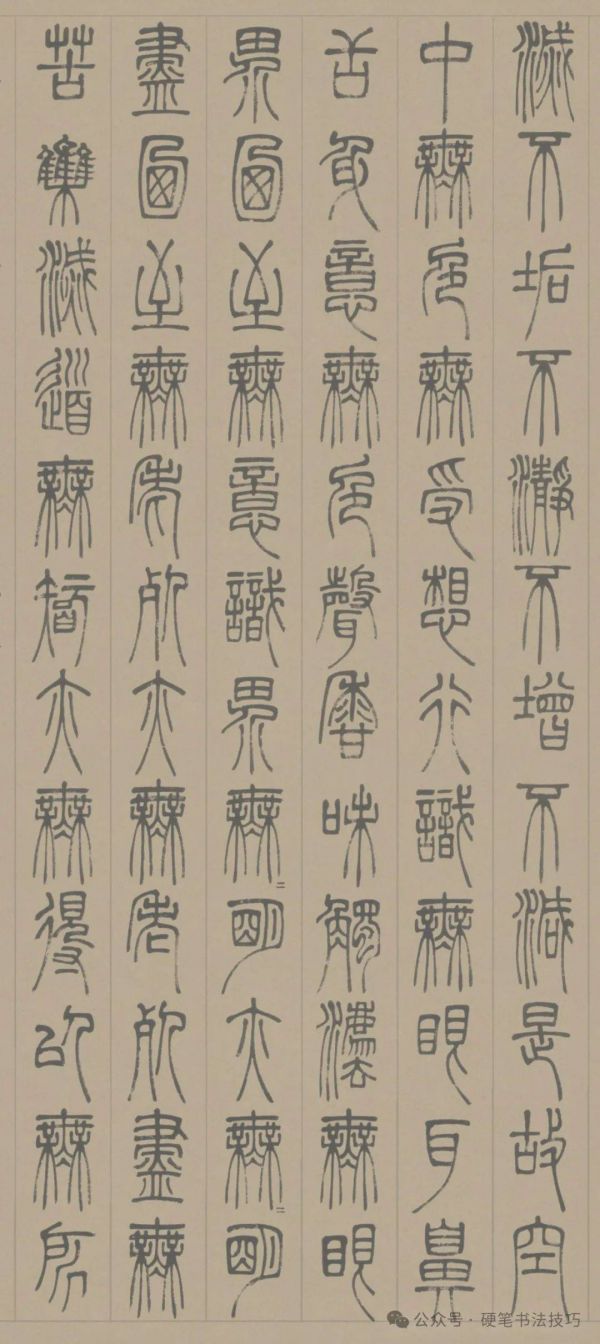 滅不垢不瀞不增不減是故空
中無色無受想行識無眼耳鼻
舌身意無色聲香味觸法無眼
界乃至無意識界無〻明亦無〻明
盡乃至無老死亦無老死盡無
苦集滅道無智亦無得以無所
公众号·硬笔书法技巧